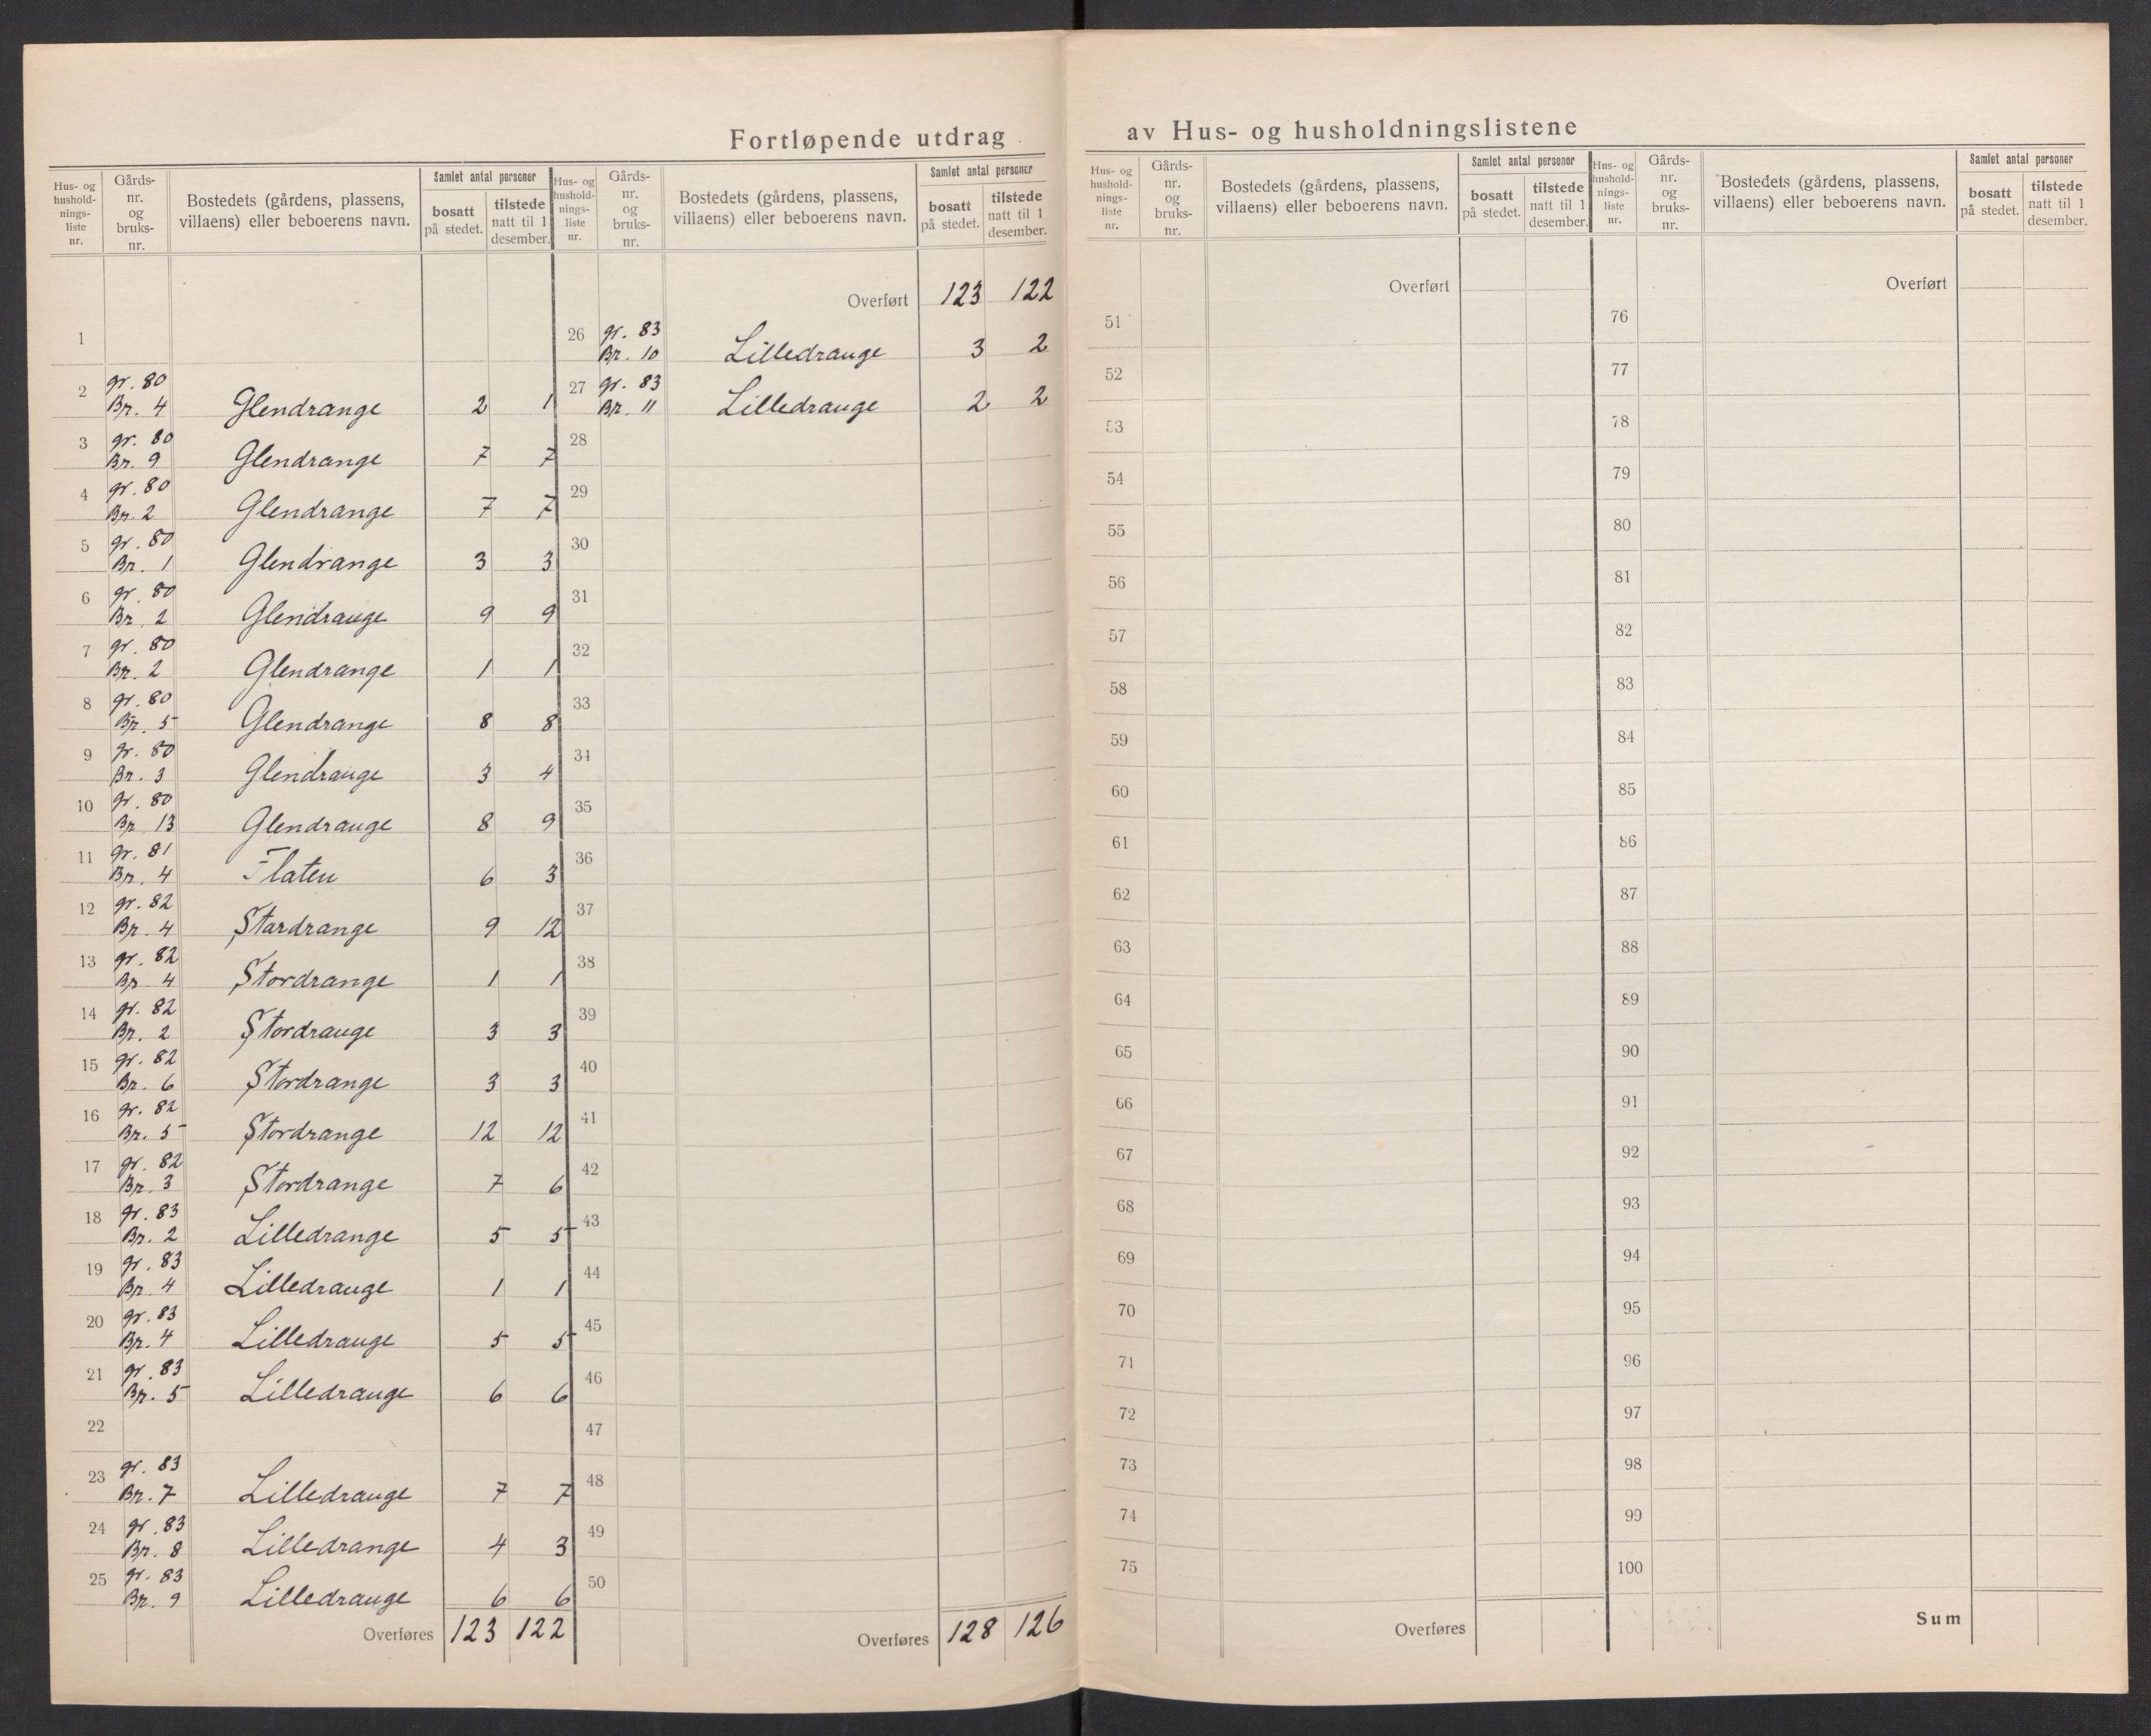 Fortløpende utdrag av Hus- og husholdningslistene
Hus- og husholdningsliste nr.
Gårds-nr. og bruks-nr.
Bostedets (gårdens, plassens, villaens) eller beboerens navn.
Samlet antal personer
bosatt på stedet.
tilstede natt til 1 desember.
1
2 gr. 80 Br. 4 Glendrange 2 1
3 gr. 80 Br. 9 Glendrange 7 7
4 gr. 80 Br. 2 Glendrange 7 7
5 gr. 80 Br. 1 Glendrange 3 3
6 gr. 80 Br. 2 Glendrange 9 9
7 gr. 80 Br. 2 Glendrange 1 1
8 gr. 80 Br. 5 Glendrange 8 8
9 gr. 80 Br. 3 Glendrange 3 4
10 gr. 80 Br. 13 Glendrange 8 9
11 gr. 81 Br. 4 Flaten 6 3
12 gr. 82 Br. 4 Stordrange 9 12
13 gr. 82 Br. 4 Stordrange 1 1
14 gr. 82 Br. 2 Stordrange 3 3
15 gr. 82 Br. 6 Stordrange 3 3
16 gr. 82 Br. 5 Stordrange 12 12
17 gr. 82 Br. 3 Stordrange 7 6
18 gr. 83 Br. 2 Lilledrange 5 5
19 gr. 83 Br. 4 Lilledrange 1 1
20 gr. 83 Br. 4 Lilledrange 5 5
21 gr. 83 Br. 5 Lilledrange 6 6
22
23 gr. 83 Br. 7 Lilledrange 7 7
24 gr. 83 Br. 8 Lilledrange 4 3
25 gr. 83 Br. 9 Lilledrange 6 6
Overføres 123 122
Hus- og husholdningsliste nr.
Gårds-nr. og bruks-nr.
Bostedets (gårdens, plassens, villaens) eller beboerens navn.
Samlet antal personer
bosatt på stedet.
tilstede natt til 1 desember.
Overført 123 122
26 gr. 83 Br. 10 Lilledrange 3 2
27 gr. 83 Br. 11 Lilledrange 2 2
28
29
30
31
32
33
34
35
36
37
38
39
40
41
42
43
44
45
46
47
48
49
50
Overføres 128 126
Hus- og husholdningsliste nr.
Gårds-nr. og bruks-nr.
Bostedets (gårdens, plassens, villaens) eller beboerens navn.
Samlet antal personer
bosatt på stedet.
tilstede natt til 1 desember.
Overført
51
52
53
54
55
56
57
58
59
60
61
62
63
64
65
66
67
68
69
70
71
72
73
74
75
Overføres
Hus- og husholdningsliste nr.
Gårds-nr. og bruks-nr.
Bostedets (gårdens, plassens, villaens) eller beboerens navn.
Samlet antal personer
bosatt på stedet.
tilstede natt til 1 desember.
Overført
76
77
78
79
80
81
82
83
84
85
86
87
88
89
90
91
92
93
94
95
96
97
98
99
100
Sum